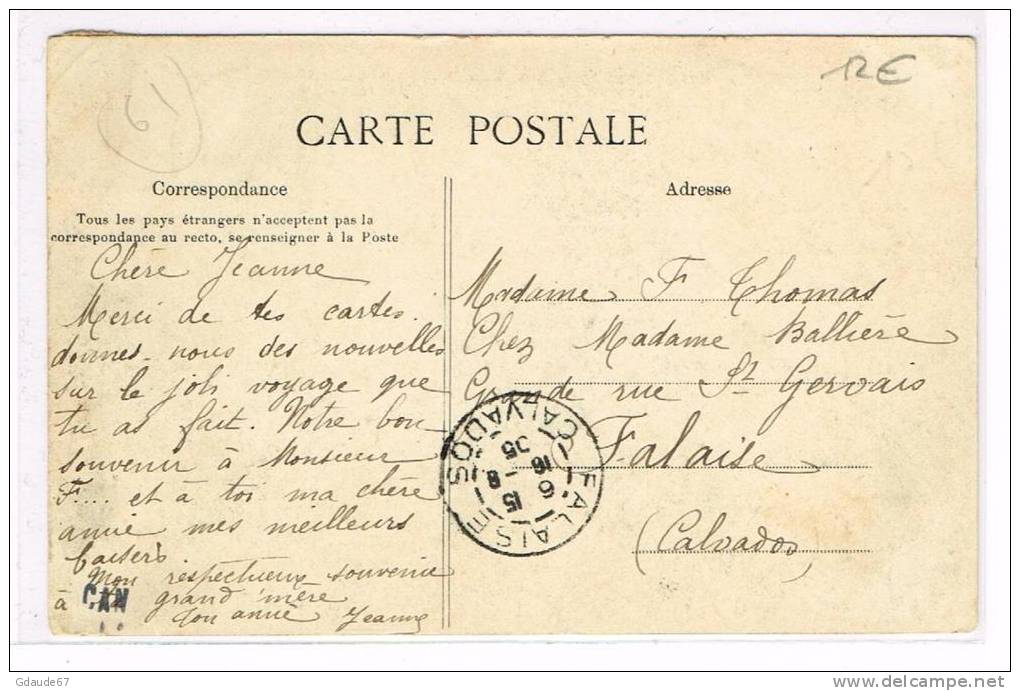 61
12€
CARTE POSTALE
Correspondance
Tous les pays étrangers n'acceptent pas la
correspondance au recto, se renseigner à la Poste
Chère Jeanne
Merci de tes cartes.
donnes-nous des nouvelles
sur le joli voyage que
tu as fait. Notre bon
souvenir à Monsieur
F.... et à toi ma chère
amie mes meilleurs
baisers.
Mon respectueux souvenir
à grand'mère
Ton amie Jeanne
CAN
Adresse
Madame F Thomas
Chez Madame Ballière
Grande rue St Gervais
Falaise
(Calvados)
FALAISE
CALVADOS
6
15 - 8
16
05
Gdaude67
www.delcampe.net